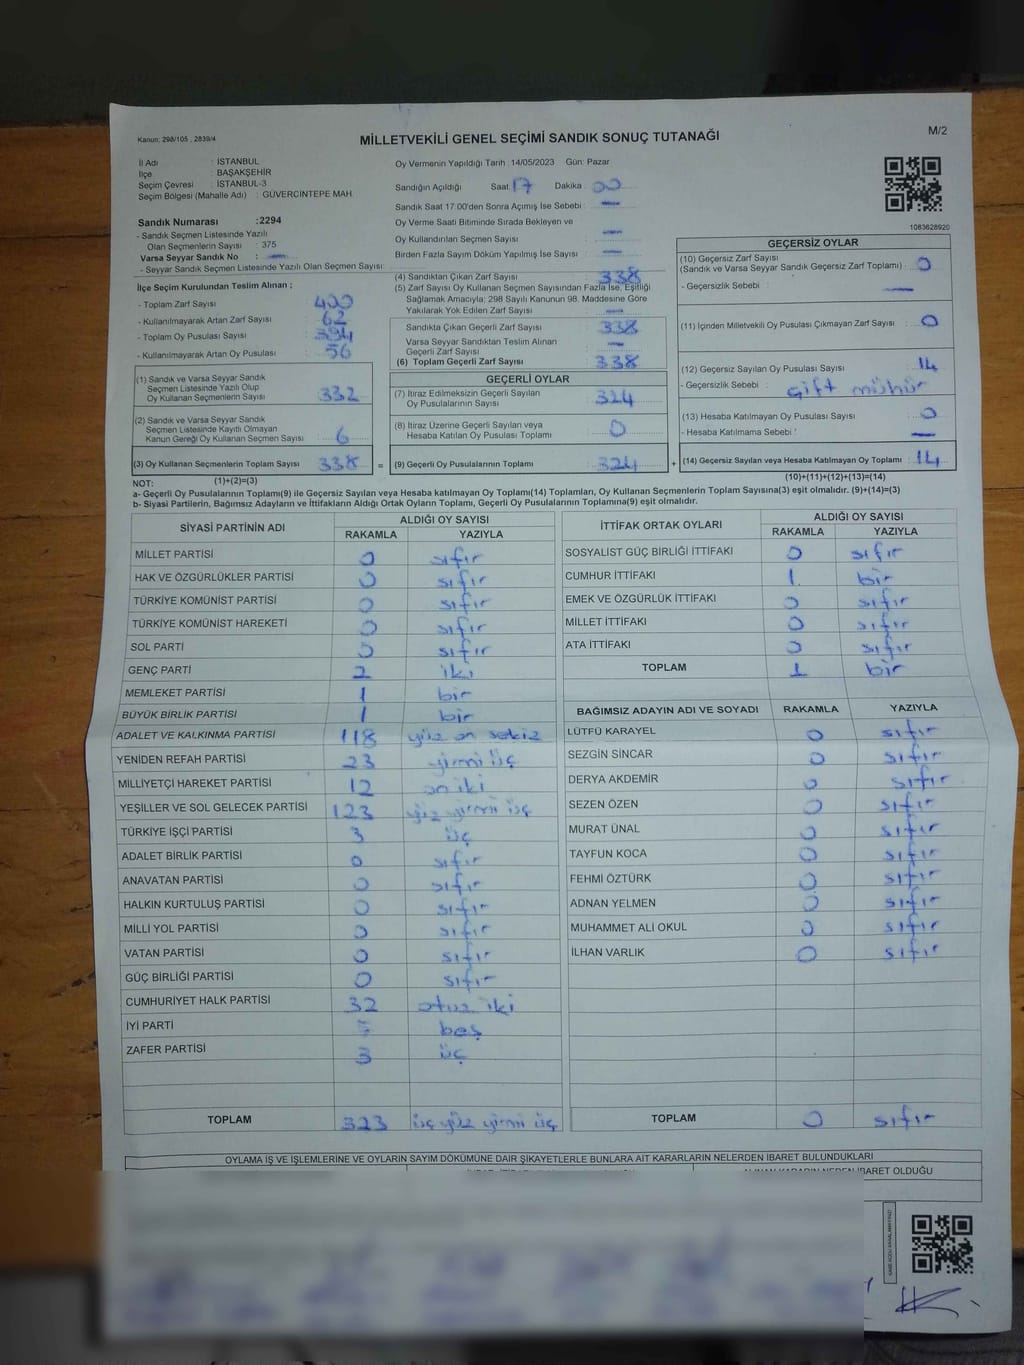 Kanun: 298/105 , 2839/4
MİLLETVEKİLİ GENEL SEÇİMİ SANDIK SONUÇ TUTANAĞI
M/2
İl Adı : İSTANBUL
İlçe : BAŞAKŞEHİR
Seçim Çevresi : İSTANBUL-3
Seçim Bölgesi (Mahalle Adı) : GÜVERCİNTEPE MAH.
Sandık Numarası :2294
- Sandık Seçmen Listesinde Yazılı
Olan Seçmenlerin Sayısı : 375
Varsa Seyyar Sandık No : —
- Seyyar Sandık Seçmen Listesinde Yazılı Olan Seçmen Sayısı:
İlçe Seçim Kurulundan Teslim Alınan ;
- Toplam Zarf Sayısı : 400
- Kullanılmayarak Artan Zarf Sayısı : 62
- Toplam Oy Pusulası Sayısı : 394
- Kullanılmayarak Artan Oy Pusulası : 56
(1) Sandık ve Varsa Seyyar Sandık
Seçmen Listesinde Yazılı Olup
Oy Kullanan Seçmenlerin Sayısı : 332
(2) Sandık ve Varsa Seyyar Sandık
Seçmen Listesinde Kayıtlı Olmayan
Kanun Gereği Oy Kullanan Seçmen Sayısı : 6
(3) Oy Kullanan Seçmenlerin Toplam Sayısı 338
(1)+(2)=(3)
Oy Vermenin Yapıldığı Tarih :14/05/2023 Gün: Pazar
Sandığın Açıldığı Saat: 17 Dakika : 00
Sandık Saat 17:00'den Sonra Açımış İse Sebebi : —
Oy Verme Saati Bitiminde Sırada Bekleyen ve
Oy Kullandırılan Seçmen Sayısı : —
Birden Fazla Sayım Döküm Yapılmış İse Sayısı : —
(4) Sandıktan Çıkan Zarf Sayısı : 338
(5) Zarf Sayısı Oy Kullanan Seçmen Sayısından Fazla İse, Eşitliği
Sağlamak Amacıyla; 298 Sayılı Kanunun 98. Maddesine Göre
Yakılarak Yok Edilen Zarf Sayısı : —
Sandıkta Çıkan Geçerli Zarf Sayısı : 338
Varsa Seyyar Sandıktan Teslim Alınan
Geçerli Zarf Sayısı : —
(6) Toplam Geçerli Zarf Sayısı : 338
GEÇERLİ OYLAR
(7) İtiraz Edilmeksizin Geçerli Sayılan
Oy Pusulalarının Sayısı : 324
(8) İtiraz Üzerine Geçerli Sayılan veya
Hesaba Katılan Oy Pusulası Toplamı : 0
= (9) Geçerli Oy Pusulalarının Toplamı : 324
1083628920
GEÇERSİZ OYLAR
(10) Geçersiz Zarf Sayısı
(Sandık ve Varsa Seyyar Sandık Geçersiz Zarf Toplamı) : 0
- Geçersizlik Sebebi : —
(11) İçinden Milletvekili Oy Pusulası Çıkmayan Zarf Sayısı : 0
(12) Geçersiz Sayılan Oy Pusulası Sayısı : 14
- Geçersizlik Sebebi : Çift mühür
(13) Hesaba Katılmayan Oy Pusulası Sayısı : 0
- Hesaba Katılmama Sebebi : —
+ (14) Geçersiz Sayılan veya Hesaba Katılmayan Oy Toplamı : 14
(10)+(11)+(12)+(13)=(14)
NOT:
a- Geçerli Oy Pusulalarının Toplamı(9) ile Geçersiz Sayılan veya Hesaba katılmayan Oy Toplamı(14) Toplamları, Oy Kullanan Seçmenlerin Toplam Sayısına(3) eşit olmalıdır. (9)+(14)=(3)
b- Siyasi Partilerin, Bağımsız Adayların ve İttifakların Aldığı Ortak Oyların Toplamı, Geçerli Oy Pusulalarının Toplamına(9) eşit olmalıdır.
SİYASİ PARTİNİN ADI ALDIĞI OY SAYISI
RAKAMLA YAZIYLA
MİLLET PARTİSİ 0 sıfır
HAK VE ÖZGÜRLÜKLER PARTİSİ 0 sıfır
TÜRKİYE KOMÜNİST PARTİSİ 0 sıfır
TÜRKİYE KOMÜNİST HAREKETİ 0 sıfır
SOL PARTİ 0 sıfır
GENÇ PARTİ 2 iki
MEMLEKET PARTİSİ 1 bir
BÜYÜK BİRLİK PARTİSİ 1 bir
ADALET VE KALKINMA PARTİSİ 118 yüz on sekiz
YENİDEN REFAH PARTİSİ 23 yirmi üç
MİLLİYETÇİ HAREKET PARTİSİ 12 on iki
YEŞİLLER VE SOL GELECEK PARTİSİ 123 yüz yirmi üç
TÜRKİYE İŞÇİ PARTİSİ 3 üç
ADALET BİRLİK PARTİSİ 0 sıfır
ANAVATAN PARTİSİ 0 sıfır
HALKIN KURTULUŞ PARTİSİ 0 sıfır
MİLLİ YOL PARTİSİ 0 sıfır
VATAN PARTİSİ 0 sıfır
GÜÇ BİRLİĞİ PARTİSİ 0 sıfır
CUMHURİYET HALK PARTİSİ 32 otuz iki
İYİ PARTİ 5 beş
ZAFER PARTİSİ 3 üç
TOPLAM 323 üç yüz yirmi üç
İTTİFAK ORTAK OYLARI ALDIĞI OY SAYISI
RAKAMLA YAZIYLA
SOSYALİST GÜÇ BİRLİĞİ İTTİFAKI 0 sıfır
CUMHUR İTTİFAKI 1 bir
EMEK VE ÖZGÜRLÜK İTTİFAKI 0 sıfır
MİLLET İTTİFAKI 0 sıfır
ATA İTTİFAKI 0 sıfır
TOPLAM 1 bir
BAĞIMSIZ ADAYIN ADI VE SOYADI RAKAMLA YAZIYLA
LÜTFÜ KARAYEL 0 sıfır
SEZGİN SİNCAR 0 sıfır
DERYA AKDEMİR 0 sıfır
SEZEN ÖZEN 0 sıfır
MURAT ÜNAL 0 sıfır
TAYFUN KOCA 0 sıfır
FEHMİ ÖZTÜRK 0 sıfır
ADNAN YELMEN 0 sıfır
MUHAMMET ALİ OKUL 0 sıfır
İLHAN VARLIK 0 sıfır
TOPLAM 0 sıfır
OYLAMA İŞ VE İŞLEMLERİNE VE OYLARIN SAYIM DÖKÜMÜNE DAİR ŞİKAYETLERLE BUNLARA AİT KARARLARIN NELERDEN İBARET BULUNDUKLARI
ALINAN KARARIN NEDEN İBARET OLDUĞU